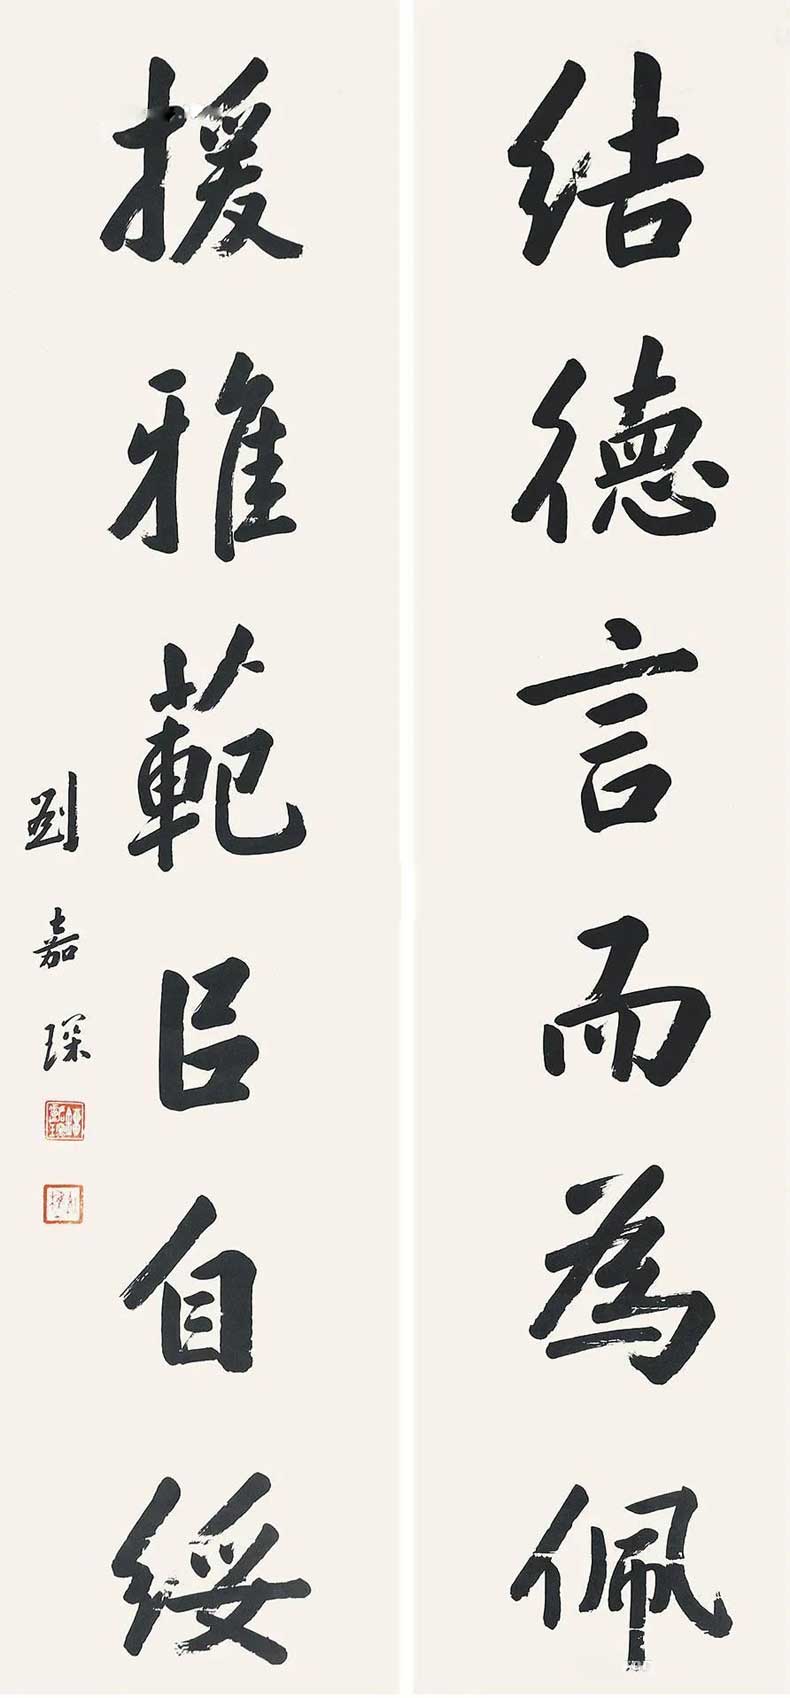 結德言而為佩
援雅範㠯自綏
劉嘉琛